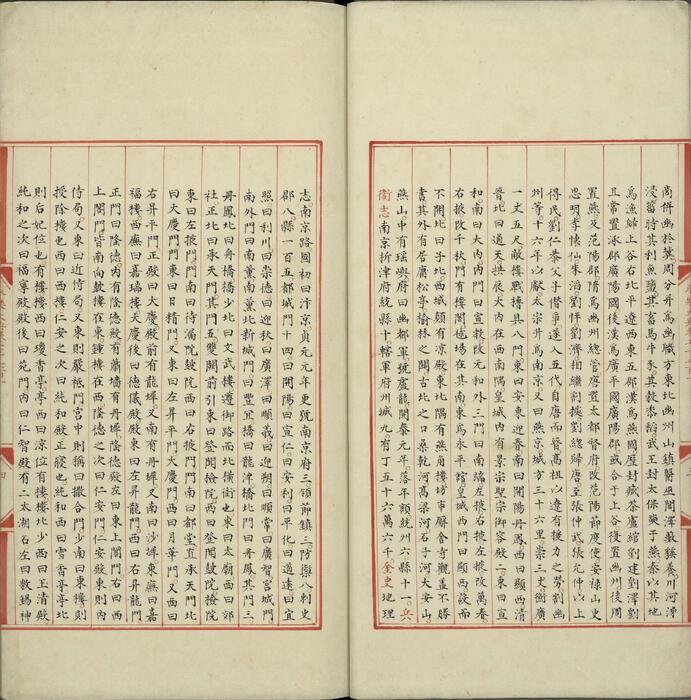 高併幽於冀周分并爲幽職方東北幽州山鎮醫巫閭澤藪貕養川河泲
浸菑時其利魚鹽其畜馬牛豕其穀黍稻武王封太保奭于燕秦以其地
爲漁陽上谷右北平遼西東五郡漢爲燕國歷封臧荼盧綰劉建劉澤劉
旦常置涿郡廣陽國後漢爲廣平國廣陽郡或合于上谷復置幽州後周
置燕及范陽郡隋爲幽州總管唐置太都督府改范陽節度使安祿山史
思明李懷仙朱滔劉怦劉濟相繼割據劉總歸唐至張仲武張允伸以上
得民劉仁恭父子僭爭遂入五代自唐而晉高祖以遼有援力之勞割幽
州等十六州以獻太宗升爲南京又曰燕京城方三十六里崇三丈衡廣
一丈五尺敵樓戰櫓具八門東曰安東迎春南曰開陽丹鳳西曰顯西清
晉北曰通天拱辰大內在西南隅皇城內有景宗聖宗御容殿二東曰宣
和南曰大內內門曰宣教改元和外三門曰南端左掖右掖左掖改萬春
右掖改千秋門有樓閣毬場在其南東爲永平館皇城西門曰顯西設而
不開北曰子北西城巔有涼殿東北隅有燕角樓坊市廨舍寺觀蓋不勝
書其外有居庸松亭榆林之關古北之口桑乾河高梁河石子河大安山
燕山中有瑤嶼府曰幽都軍號盧龍開泰元年落年額統州六縣十一兵
衞志南京析津府統縣十轄軍府州城九有丁五十六萬六千金史地理
志南京路國初曰汴京貞元元年更號南京府三領節鎮三防禦八刺史
郡八縣一百五都城門十四曰開陽曰宣仁曰安利曰平化曰通遠曰宜
照曰利川曰崇德曰迎秋曰廣澤曰順義曰迎朔曰順常曰廣智宮城門
南外門曰南薰南薰北新城門曰豐宜橋曰龍津橋北門曰丹鳳其門三
丹鳳北曰舟橋橋少北曰文武樓遵御路而北橫街也東曰太廟西曰郊
社正北曰承天門其門五雙闕前引東曰登聞檢院西曰登聞鼓院檢院
東曰左掖門門南曰待漏院鼓院西曰右掖門門南曰都堂直承天門北
曰大慶門門東曰日精門又東曰左昇平門大慶門西曰月華門又西曰
右昇平門正殿曰大慶殿前有龍墀又南有丹墀又南曰沙墀東廡曰嘉
福樓西廡曰嘉瑞樓大慶後曰德儀殿殿東曰左昇龍門西曰右昇龍門
正門曰隆德內有隆德殿有蕭墻有丹墀隆德殿左曰東上閤門右曰西
上閤門皆南向鼓樓在東鐘樓在西隆德之次曰仁安門仁安殿東則內
侍局又東曰近侍局又東則嚴祗門宮中則稱曰撒合門少南曰東樓則
授除樓也西曰西樓仁安之次曰純和殿正寢也純和西曰雪香亭亭北
則后妃位也有樓樓西曰瓊香亭亭西曰涼位有樓樓北少西曰玉清殿
純和之次曰福寧殿殿後曰苑門內曰仁智殿有二太湖石左曰敷錫神